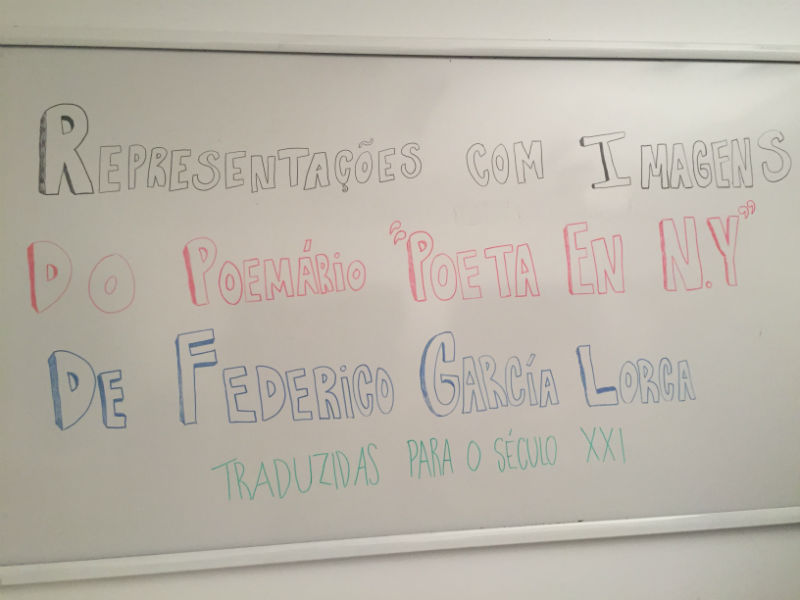 Representações com Imagens
Do Poemário "Poeta En N.Y"
De Federico García Lorca
TRADUZIDAS PARA O SÉCULO XXI